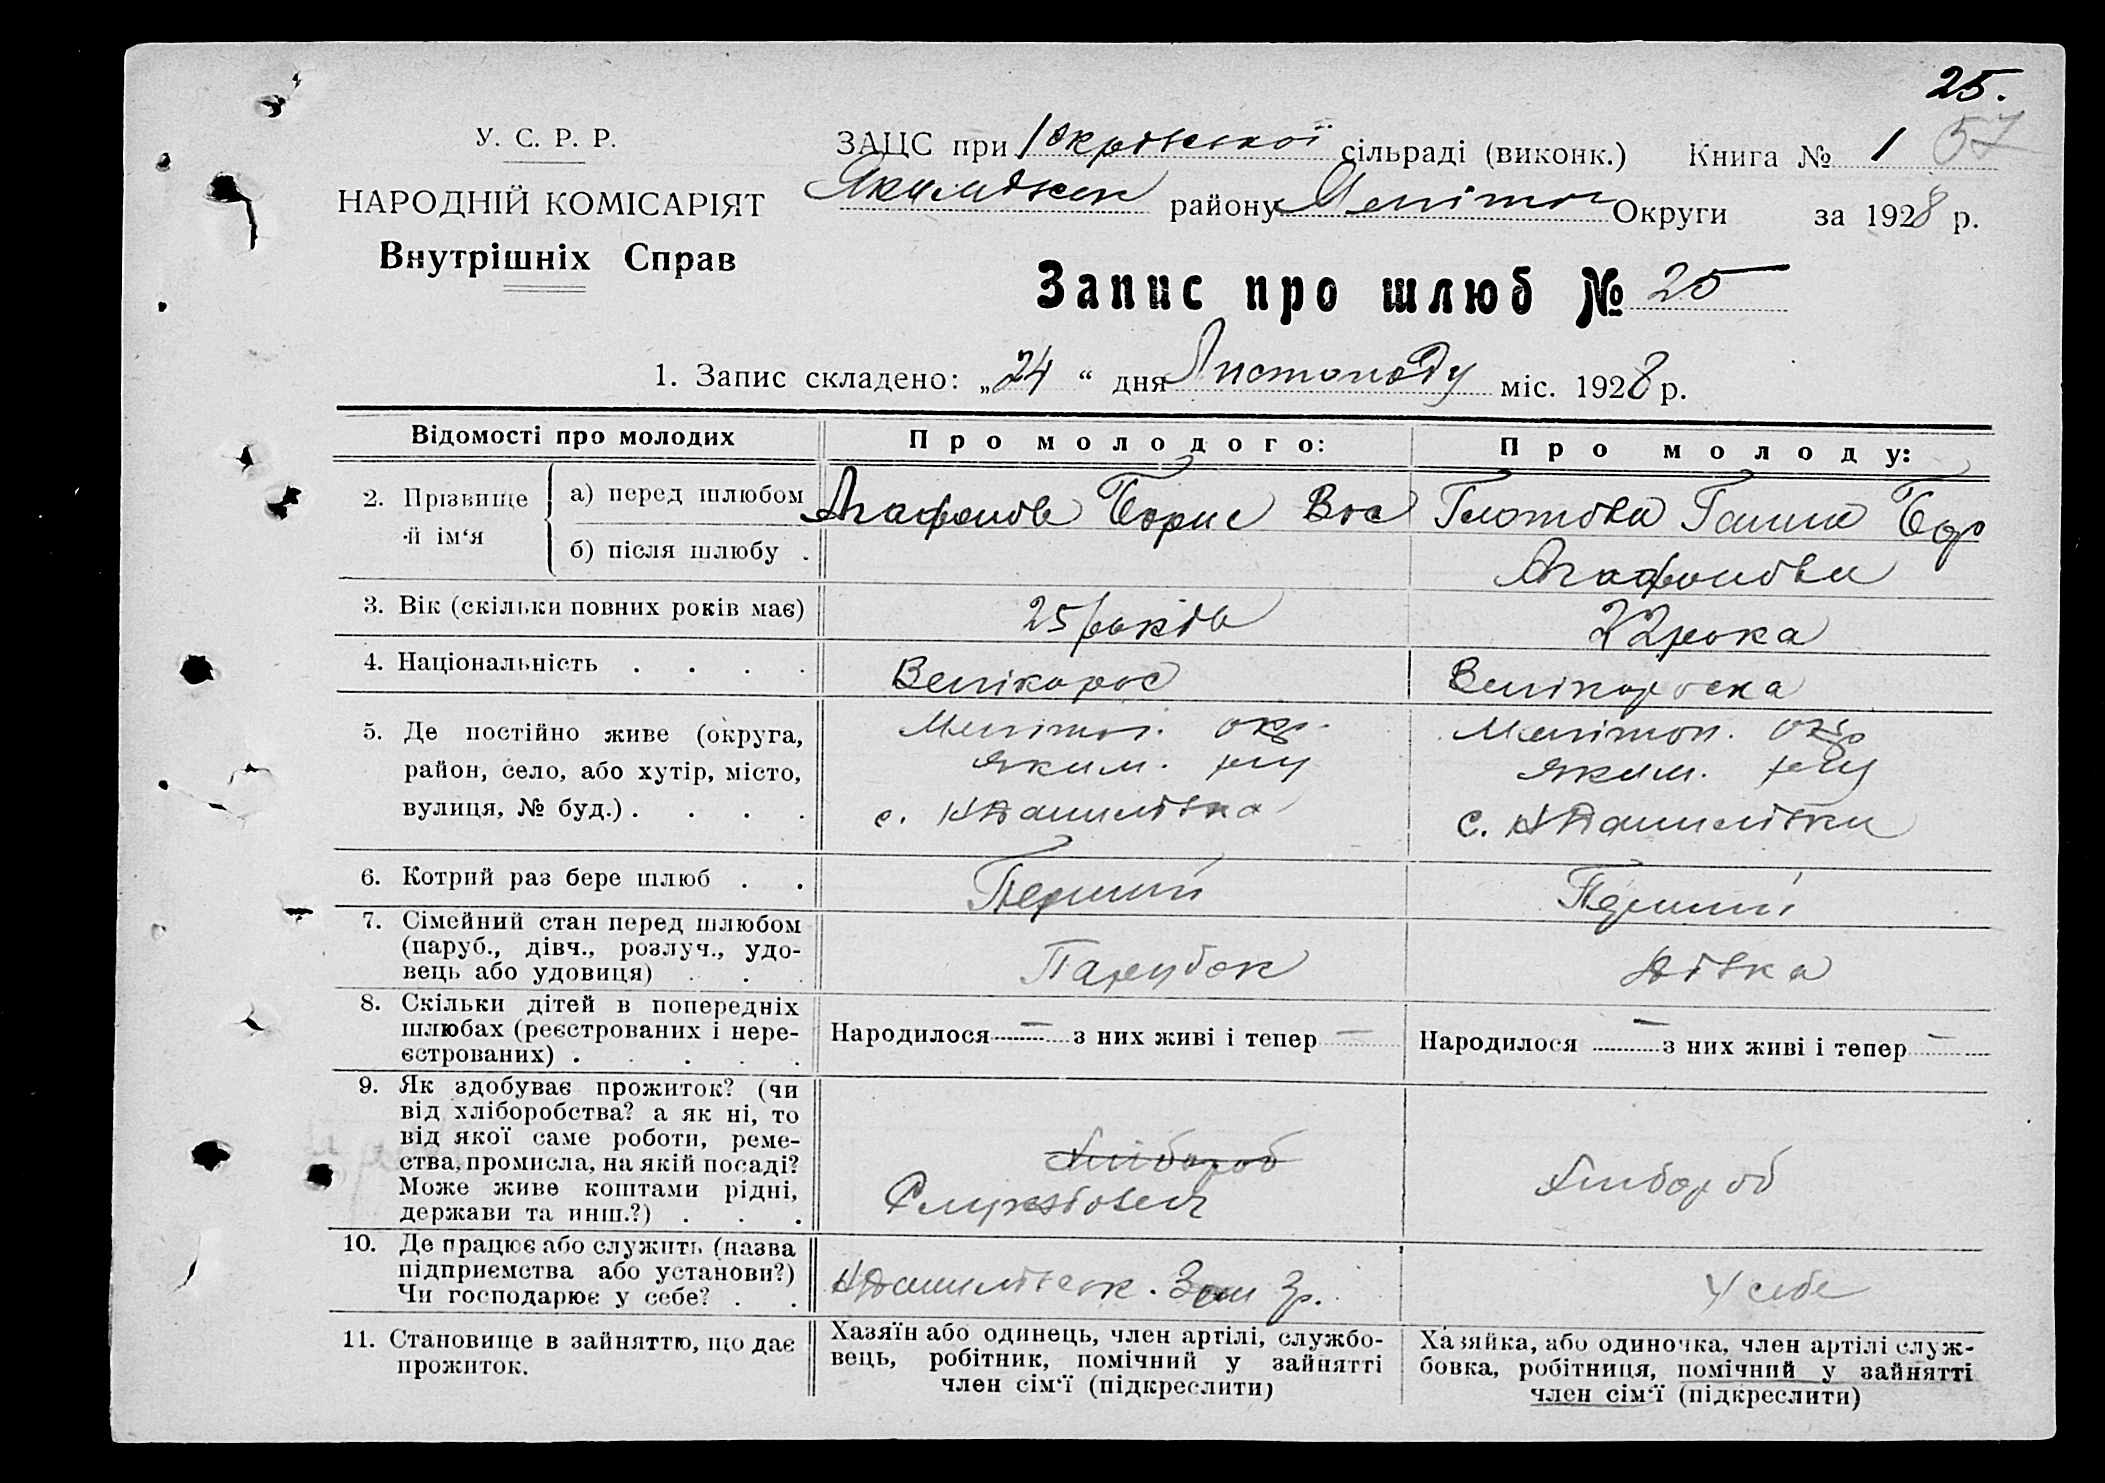 25.
У. С. Р. Р.
НАРОДНІЙ КОМІСАРІЯТ
Внутрішніх Справ
ЗАЦС при сільраді (виконк.) Книга № 1 57
Якимівськ району Меліто Округи за 1928 р.
Запис про шлюб № 25
1. Запис складено: „24“ дня Листопаду міс. 1928 р.
Відомості про молодих
Про молодого:
Про молоду:
2. Прізвище й ім‘я
а) перед шлюбом
Агафонов Борис Вас
Глотова Ганна
б) після шлюбу .
Агафонова
3. Вік (скільки повних років має)
25 років
22 рока
4. Національність . . . .
Велікорос
Велікороска
5. Де постійно живе (округа,
район, село, або хутір, місто,
вулиця, № буд.) . . . .
Меліт. окр.
Яким. р-ну
с. НДанилівка
Мелітоп. окр
Яким. р-ну
с. НДанилівка
6. Котрий раз бере шлюб . .
Перший
Перший
7. Сімейний стан перед шлюбом
(паруб., дівч., розлуч., удо-
вець або удовиця) . . .
Парубок
Дівка
8. Скільки дітей в попередніх
шлюбах (реєстрованих і нере-
єстрованих) . . . . .
Народилося — з них живі і тепер —
Народилося — з них живі і тепер —
9. Як здобуває прожиток? (чи
від хліборобства? а як ні, то
від якої саме роботи, реме-
ства, промисла, на якій посаді?
Може живе коштами рідні,
держави та инш.?) . . .
Хлібороб
Службовець
Хлібороб
10. Де працює або служить (назва
підприємства або установи?)
Чи господарює у себе? . .
НДанилівськ.
У себе
11. Становище в зайняттю, що дає
прожиток.
Хазяїн або одинець, член артілі, службо-
вець, робітник, помічний у зайнятті
член сім‘ї (підкреслити)
Хазяйка, або одиночка, член артілі служ-
бовка, робітниця, помічний у зайнятті
член сім‘ї (підкреслити)